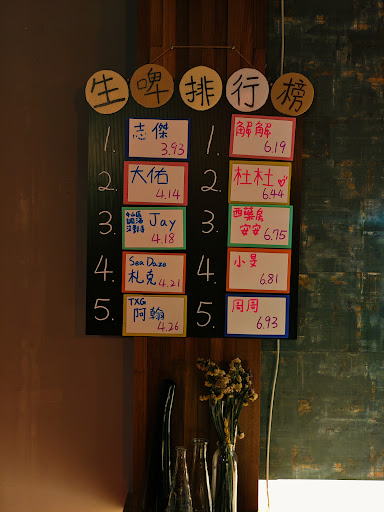 生啤排行榜
1. 志傑
3.93
2. 大佑
4.14
3. Jay
4.18
4. Sea Daze
札克 4.21
5. TXG
阿翰
4.26
1. 解解
6.19
2. 杜杜
6.44
3. 西藥房
安安 6.75
4. 小旻
6.81
5. 周周
6.93